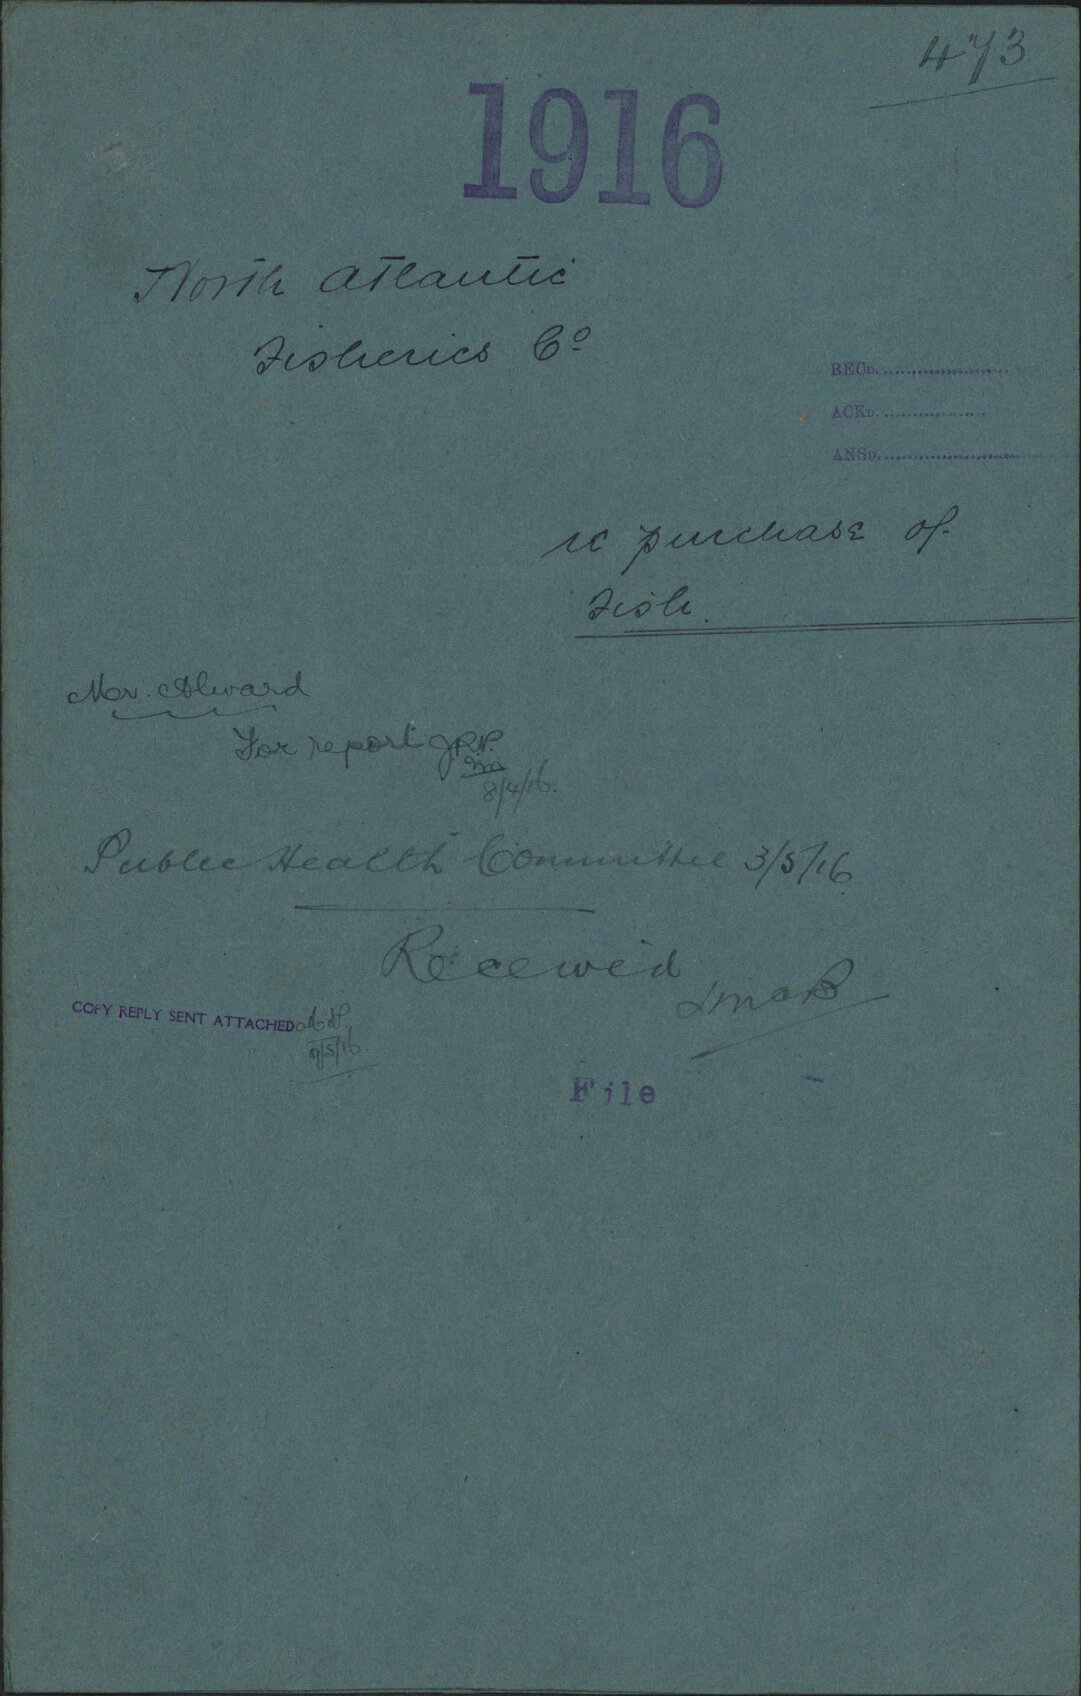 473
1916
North Atlantic
Fisheries Co
RECD.
ACKD.
ANSD.
re purchase of
Fish.
Mr. Alward
For report
8/4/16.
Public Health Committee 3/5/16
Received
COPY REPLY SENT ATTACHED
9/5/16.
File